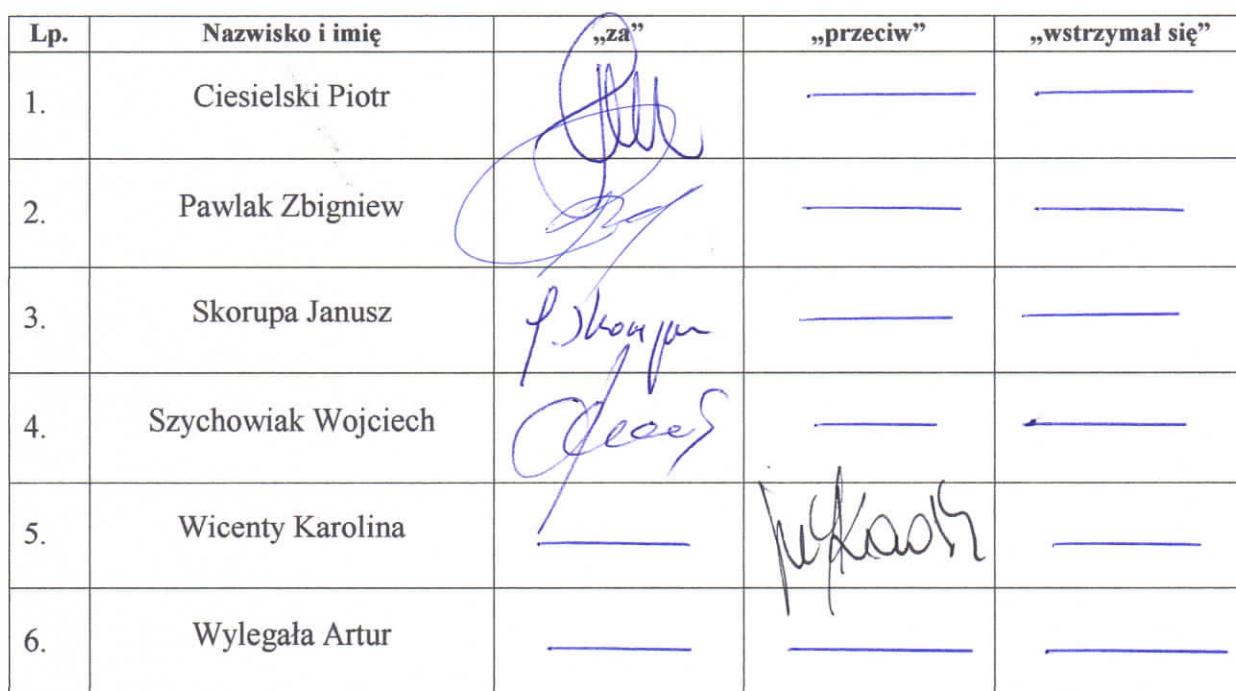 Lp. Nazwisko i imię „za” „przeciw” „wstrzymał się”
1. Ciesielski Piotr
2. Pawlak Zbigniew
3. Skorupa Janusz
4. Szychowiak Wojciech
5. Wicenty Karolina
6. Wylegała Artur